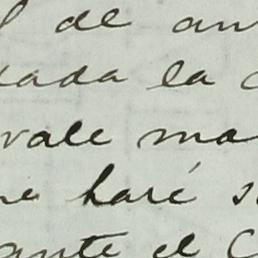 de an
dada la
vale ma
haré s
ante el C